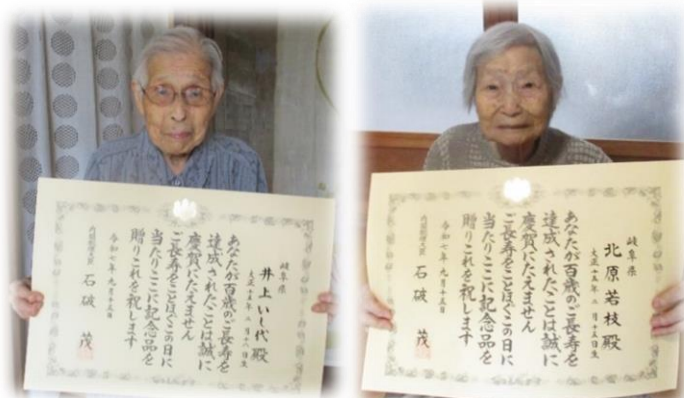 岐阜県
井上いし代 殿
大正十五年二月十八日生
あなたが百歳のご長寿を
達成されたことは誠に
慶賀にたえません
ご長寿をことほぐこの日に
当たりここに記念品を
贈りこれを祝します
令和七年九月十五日
内閣総理大臣 石破 茂
岐阜県
北原若枝 殿
大正十五年二月十五日生
あなたが百歳のご長寿を
達成されたことは誠に
慶賀にたえません
ご長寿をことほぐこの日に
当たりここに記念品を
贈りこれを祝します
令和七年九月十五日
内閣総理大臣 石破 茂